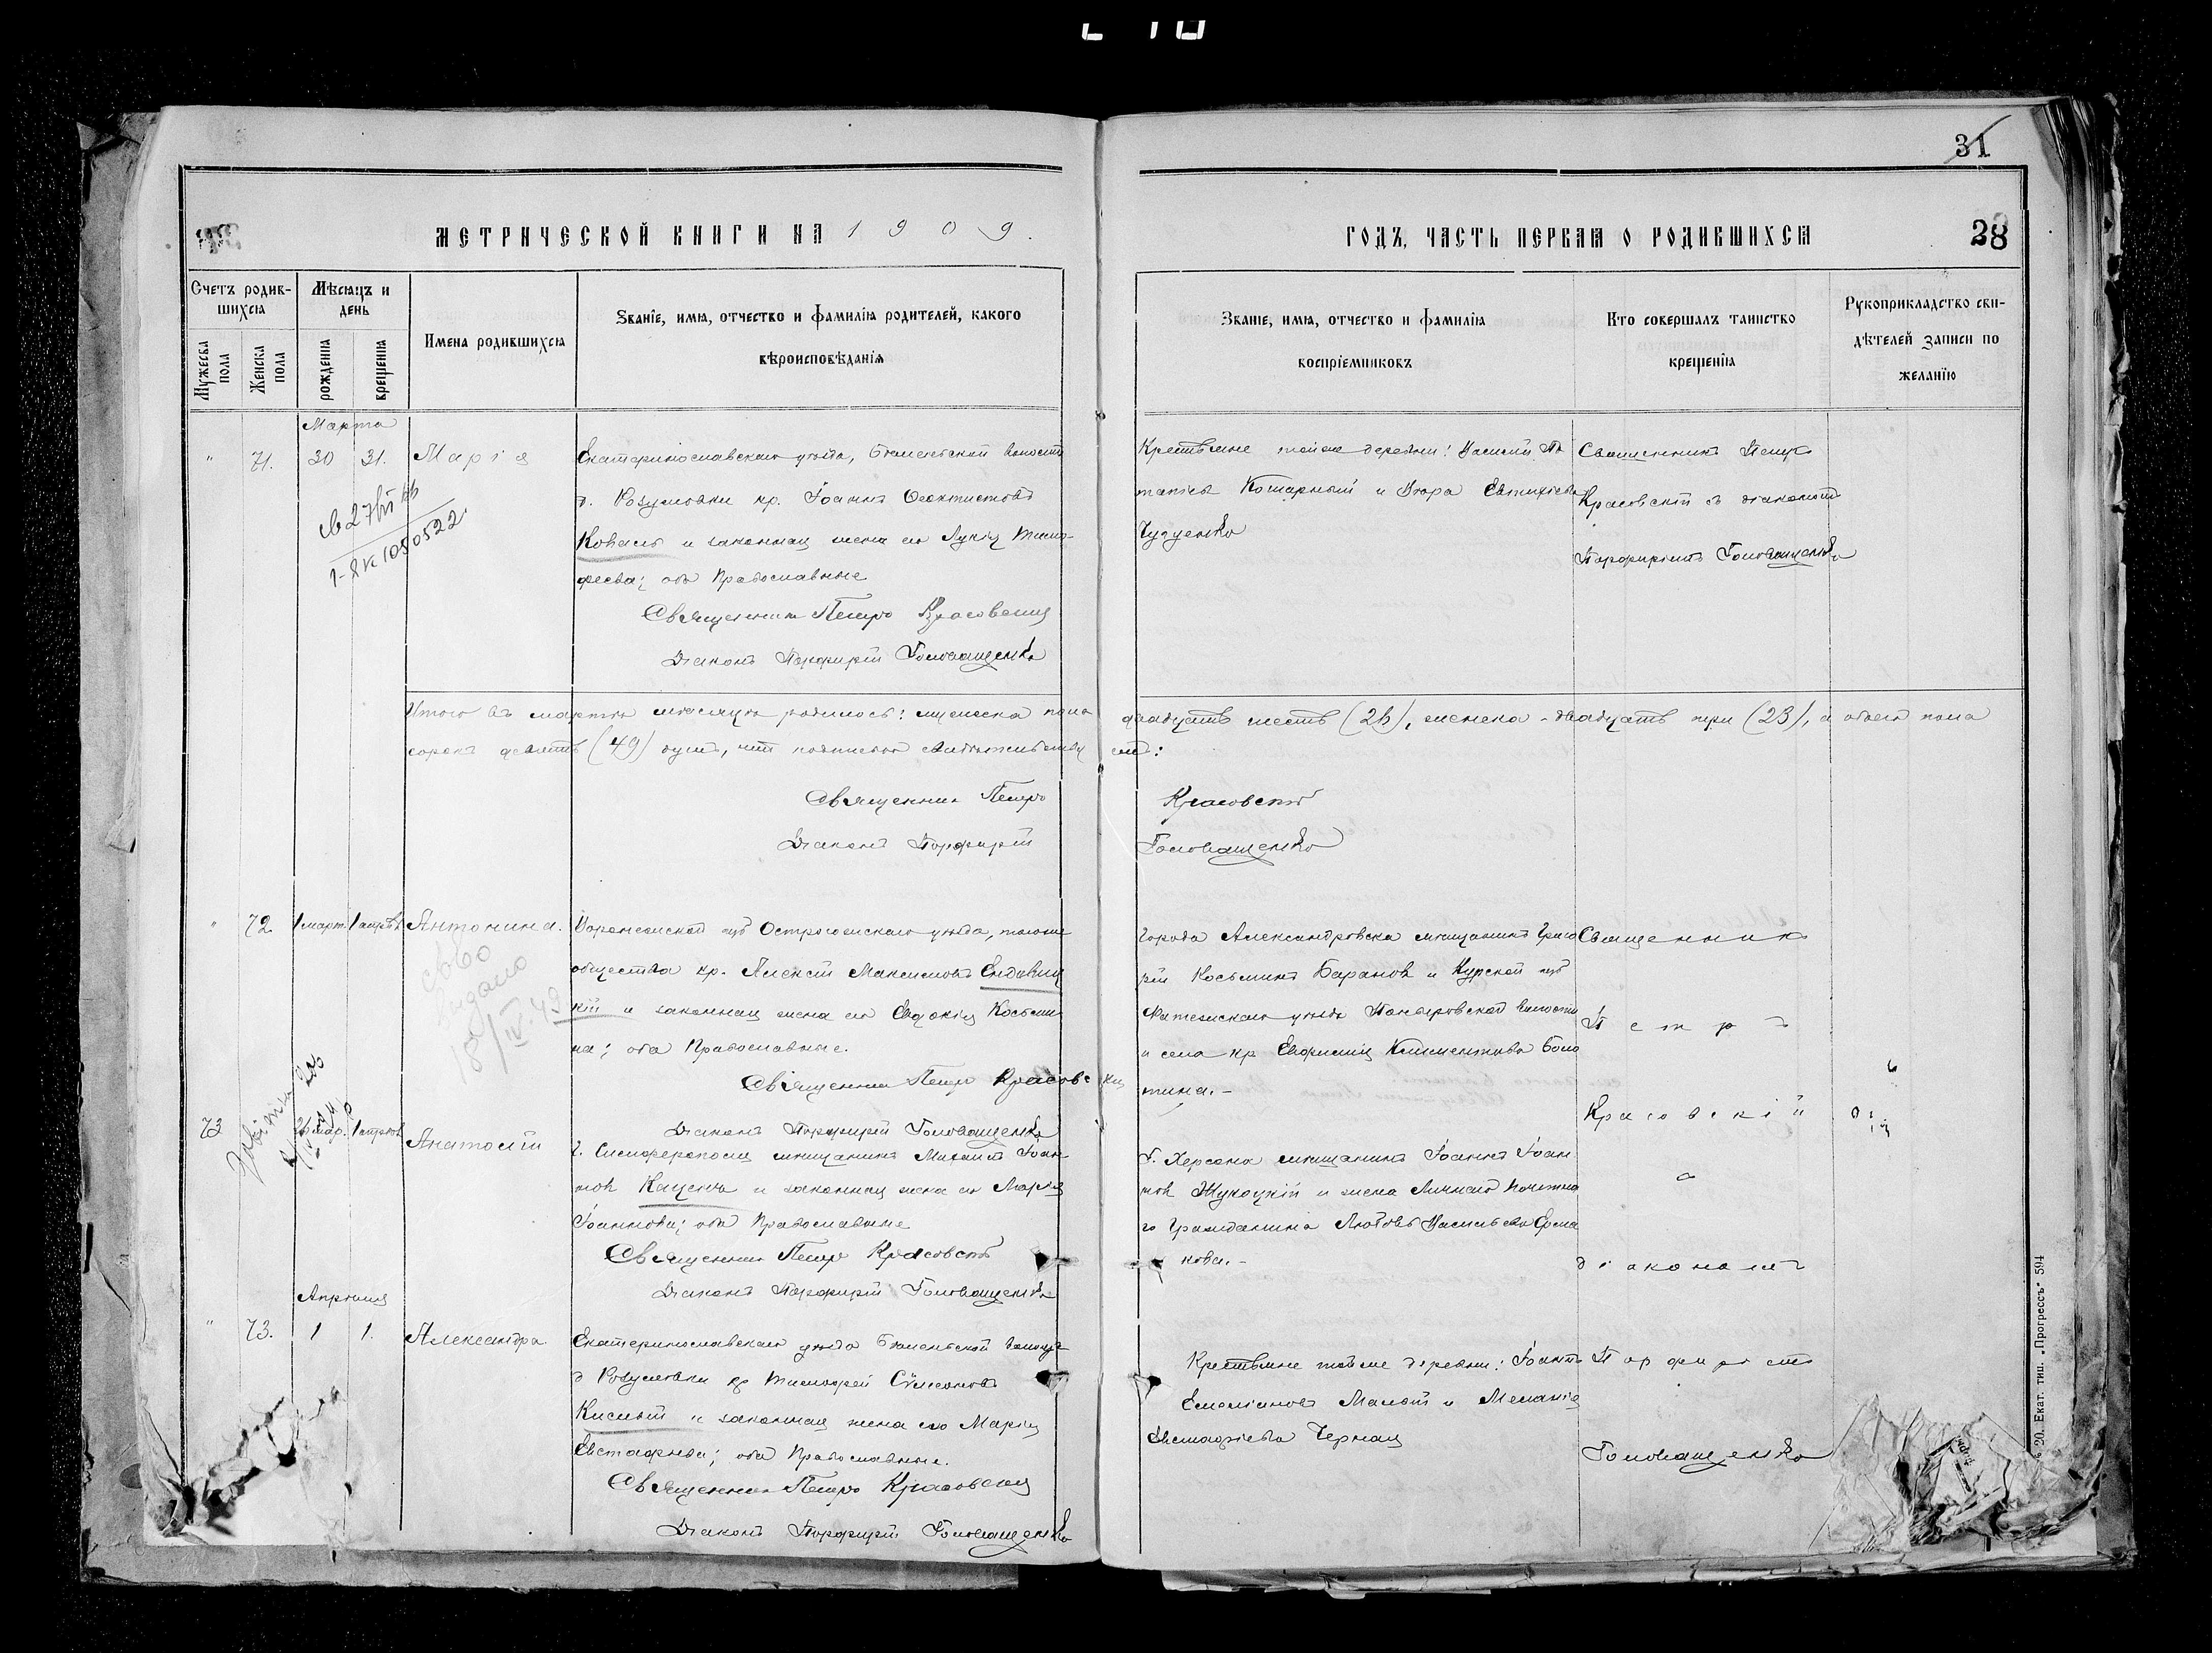 31
МЕТРИЧЕСКОЙ КНИГИ НА 1909.
ГОДЪ, ЧАСТЬ ПЕРВАЯ О РОДИВШИХСЯ
28
Счетъ родив-
шихся
Мѣсяцъ и
день
Имена родившихся
Званіе, имя, отчество и фамилія родителей, какого
вѣроисповѣданія
Мужеска пола
Женска пола
рожденія
крещенія
Званіе, имя, отчество и фамилія
воспріемниковъ
Кто совершалъ таинство
крещенія
Рукоприкладство сви-
дѣтелей записи по
желанію
Марта
" 71. 30 31. Марія
Екатеринославскаго уѣзда, Бѣленьской волости
д. Розумовки кр. Іоаннъ Ѳеоктистовъ
Коваль и законная жена его Лукія Тимо-
феева; оба Православные
Священникъ Петръ Красовскій
Діаконъ Порфирій Головащенко
1-ЯК 1050522
Крестьяне той же деревни: Василій По
тапіевъ Котарный и Евтихіева
Чугуенко
Священникъ Петръ
Красовскій съ діакономъ
Порфиріемъ Головащенко
Итого въ мартѣ мѣсяцѣ родилось: мужеска пола двадцать шесть (26), женска - двадцать три (23), а обоего пола
сорокъ девять (49) душъ, чт подписью свидѣтельству емъ:
Священникъ Петръ Красовскій
Діаконъ Порфирій Головащенко
" 72. 1 март. 1 апрѣл Антонина.
Воронежской губ Острогожскаго уѣзда, того же
общества кр. Алексѣй Максимовъ Ендовиц
кій и законная жена его Евдокія Косьми
на; оба Православные.
Священникъ Петръ Красовскій
Діаконъ Порфирій Головащенко
св-во
выдано
18/IV-49
Города Александровска мѣщанинъ Григо
рій Косьминъ Барановъ и Курской губ
Фатежскаго уѣзда Поныровской волости
и села кр Евфимія Климентова Боло
тина.-
Священникъ
Петръ
Красовскій
73 26 мар. 1 апрѣл Анатолій
г. Симферополя мѣщанинъ Михаилъ Іоан
новъ Каценъ и законная жена его Марія
Іоаннова; оба Православные
Священникъ Петръ Красовскій
Діаконъ Порфирій Головащенко
г. Херсона мѣщанинъ Іоаннъ Іоан
новъ Жукоцкій и жена Личнаго Почетна
го Гражданина Любовь Васильева Ерма
кова.-
съ
діакономъ
Апрѣля
" 73. 1 1. Александра
Екатеринославскаго уѣзда Бѣленьской волости
д Розумовки кр Тимофей Сѵмеоновъ
Кислый и законная жена его Марія
Евстафіева; оба Православные.
Священникъ Петръ Красовскій
Діаконъ Порфирій Головащенко
Крестьяне той же деревни: Іоаннъ
Емеліановъ Малый и Меланія
Евстафіева Черная
Порфиріемъ
Головащенко
№ 20. Екат. тип. „Прогрессъ" 594